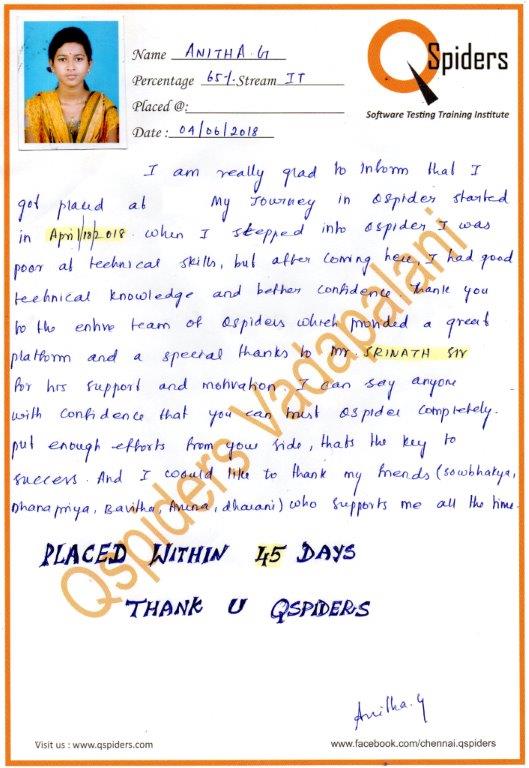 Name ANITHA.G
Percentage 65%. Stream IT
Placed @:
Date : 04/06/2018
QSpiders
Software Testing Training Institute
I am really glad to inform that I
got placed at My Journey in Qspider started
in April/18/2018. when I stepped into Qspider I was
poor at technical skills, but after coming here, I had good
technical knowledge and better confidence. Thank you
to the entire team of Qspiders which provided a great
platform and a special thanks to Mr. SRINATH SIR
for his support and motivation. I can say anyone
with confidence that you can trust Qspider completely.
put enough efforts from your side, thats the key to
success. And I would like to thank my friends (sowbhakya,
Dhanapriya, Bavitha, Aruna, dharani) who supports me all the time.
PLACED WITHIN 45 DAYS
THANK U QSPIDERS
Qspiders Vadapalani
Anitha.G
Visit us : www.qspiders.com
www.facebook.com/chennai.qspiders